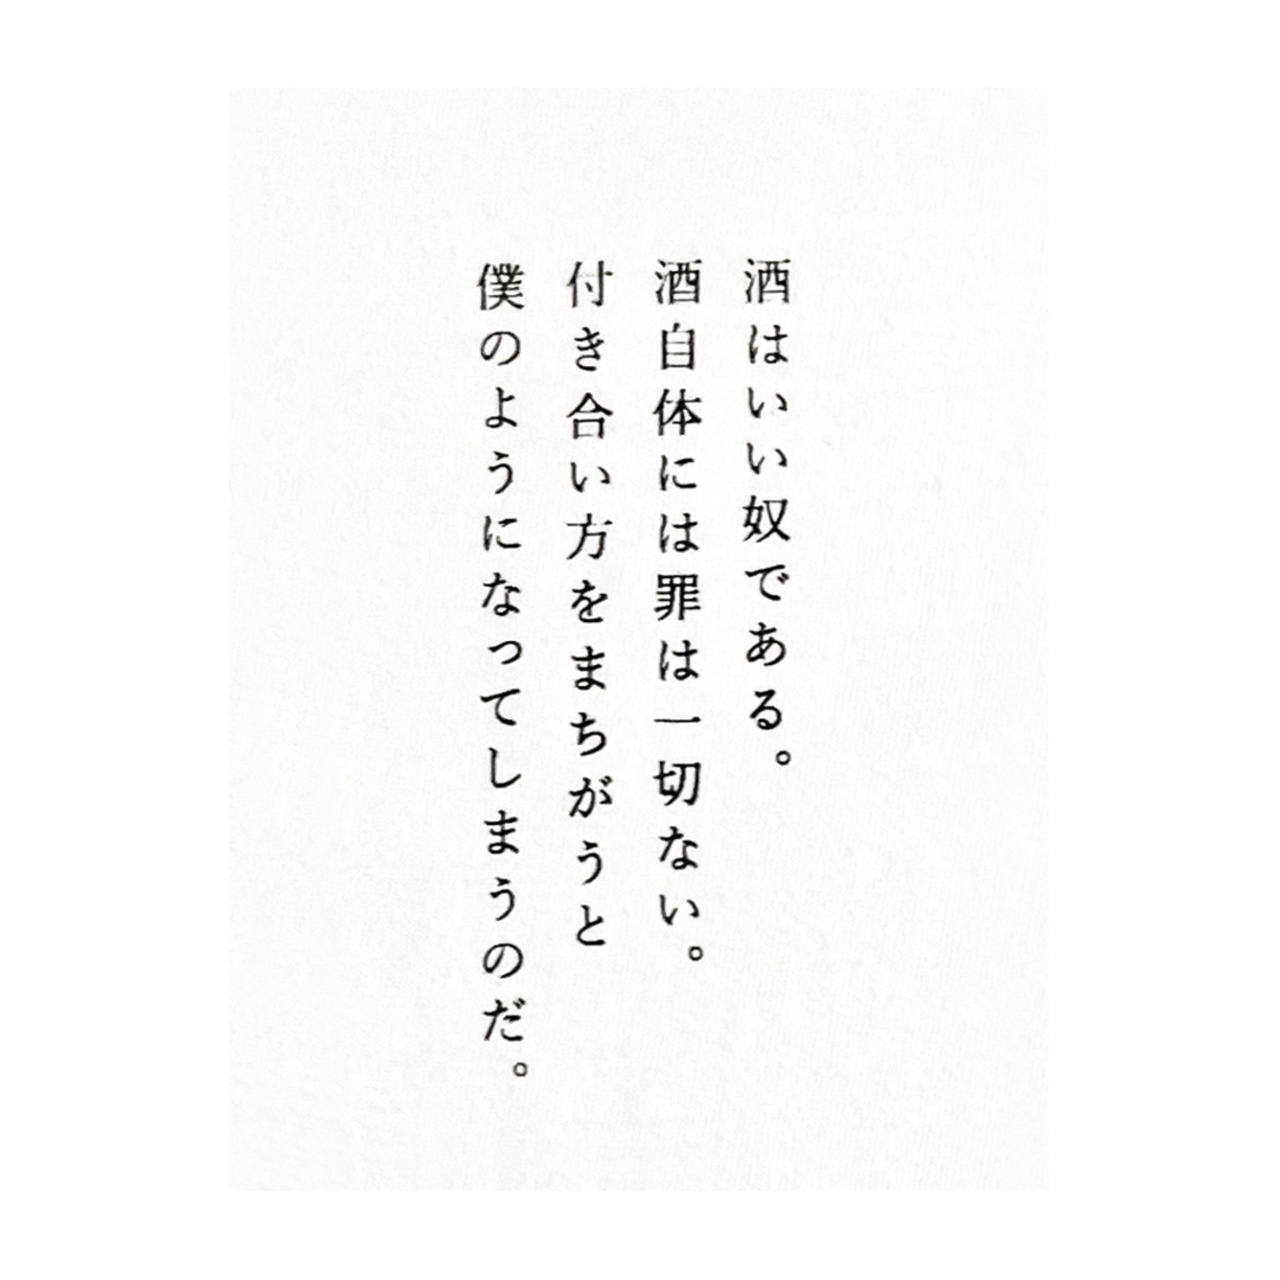 酒はいい奴である。
酒自体には罪は一切ない。
付き合い方をまちがうと
僕のようになってしまうのだ。